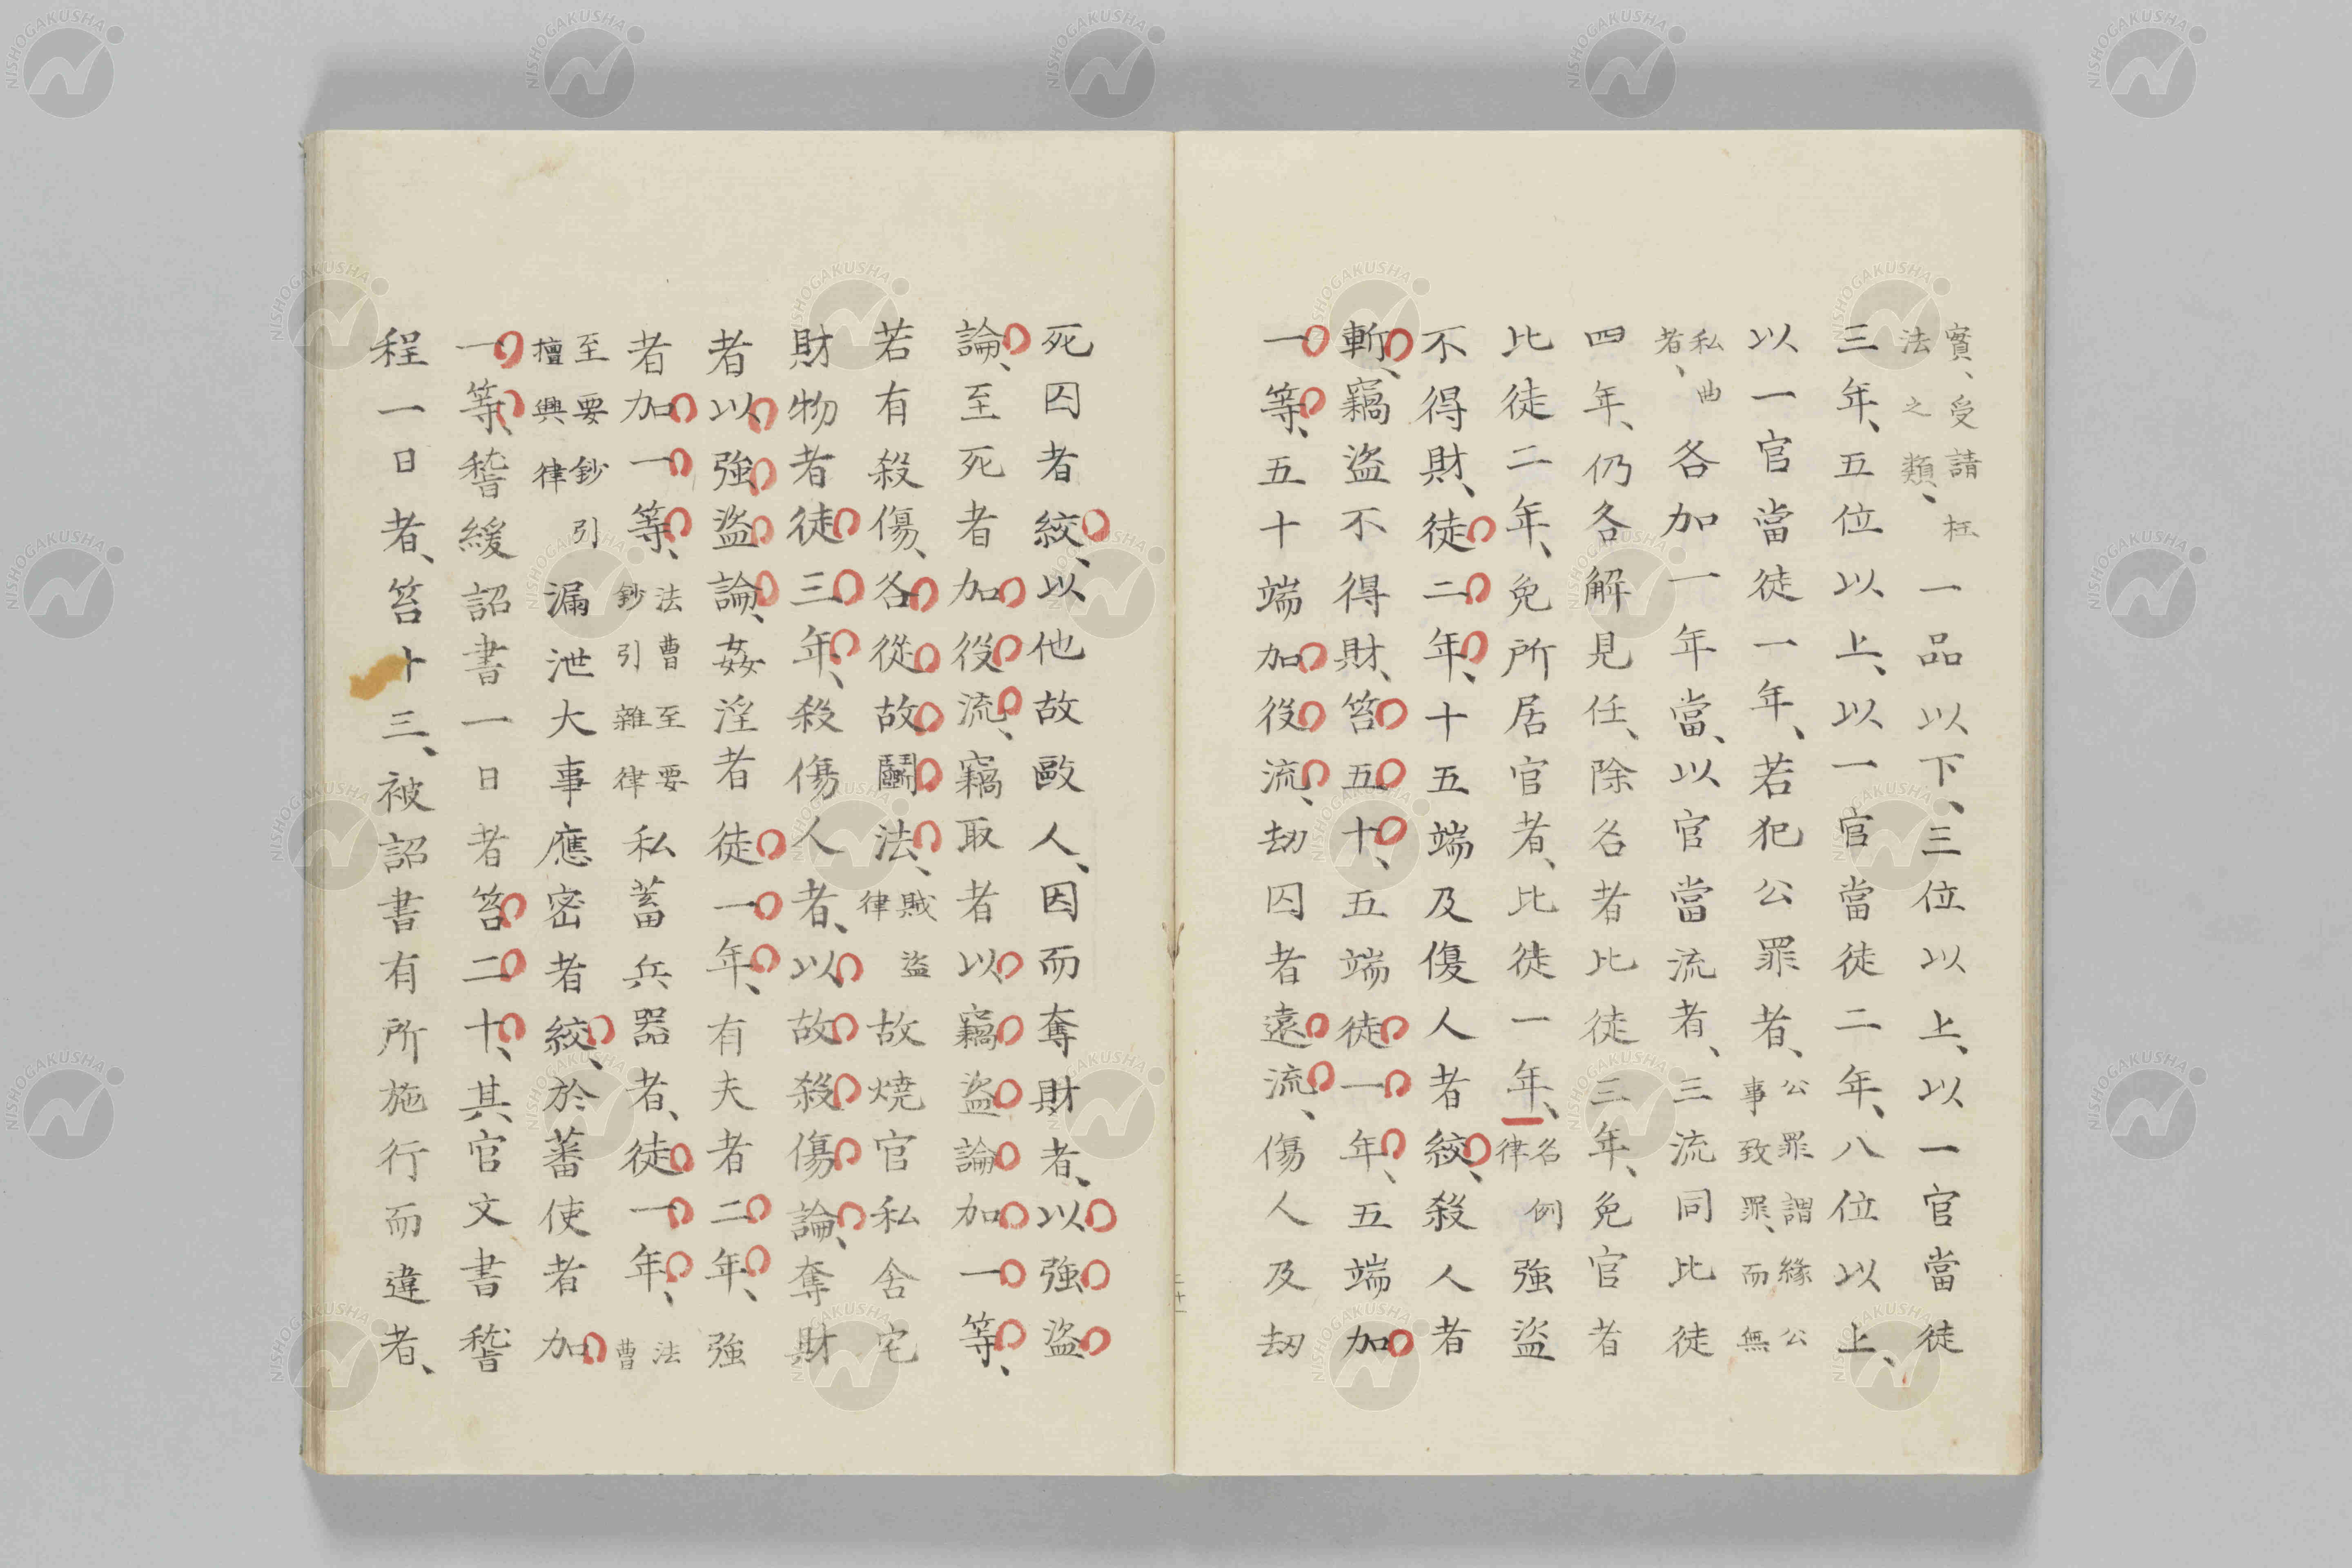 實、受請枉法之類、一品以下、三位以上、以一官當徒
三年、五位以上、以一官當徒二年、八位以上、
以一官當徒一年、若犯公罪者、公罪謂緣公事致罪、而無
私曲者、各加一年當、以官當流者、三流同比徒
四年、仍各解見任、除名者比徒三年、免官者
比徒二年、免所居官者、比徒一年、名例律強盗
不得財、徒二年、十五端及傷人者絞、殺人者
斬、竊盗不得財、笞五十、五端徒一年、五端加
一等、五十端加役流、劫囚者遠流、傷人及劫
死囚者絞、以他故毆人、因而奪財者、以強盗
論、至死者加役流、竊取者以竊盗論加一等、
若有殺傷、各從故鬪法、賊盗律故燒官私舍宅
財物者徒三年、殺傷人者、以故殺傷論、奪財
者以強盗論、姦淫者徒一年、有夫者二年、強
者加一等、法曹至要鈔引雜律私蓄兵器者、徒一年、法曹
至要鈔引擅興律漏泄大事應密者絞、於蕃使者加
一等、稽緩詔書一日者笞二十、其官文書稽
程一日者、笞十三、被詔書有所施行而違者、
NISHOGAKUSHA